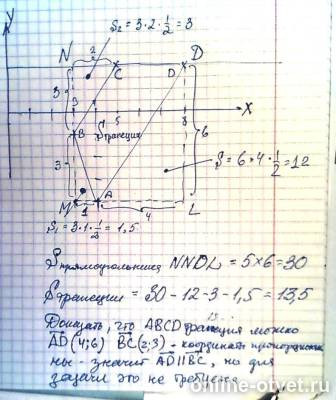 Y
S₂ = 3·2·½ = 3
N 2 D
C D
X
3 5 8
B Sтрапеции 6
3 S = 6·4·½ = 12
M 1 A 4 L
S₁ = 3·1·½ = 1,5
Sпрямоугольника NNDL = 5×6 = 30
Sтрапеции = 30 - 12 - 3 - 1,5 = 13,5
Доказать, что ABCD трапеция можно
AD (4;6) BC (2;3) - координаты пропорциональ-
ны - значит AD || BC, но для
задачи это не требуется
online-otvet.ru